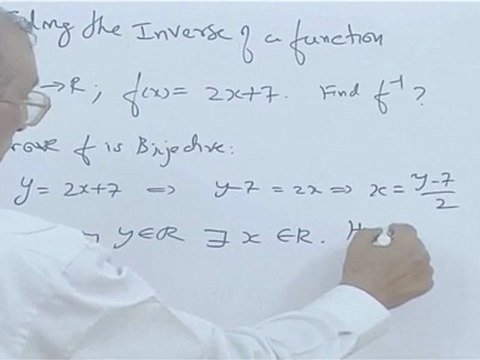 the Inverse of a function
→R; f(x) = 2x+7. Find f⁻¹?
f is Bijective:
y = 2x+7 ⇒ y-7 = 2x ⇒ x = (y-7)/2
y∈R ∃ x ∈R.